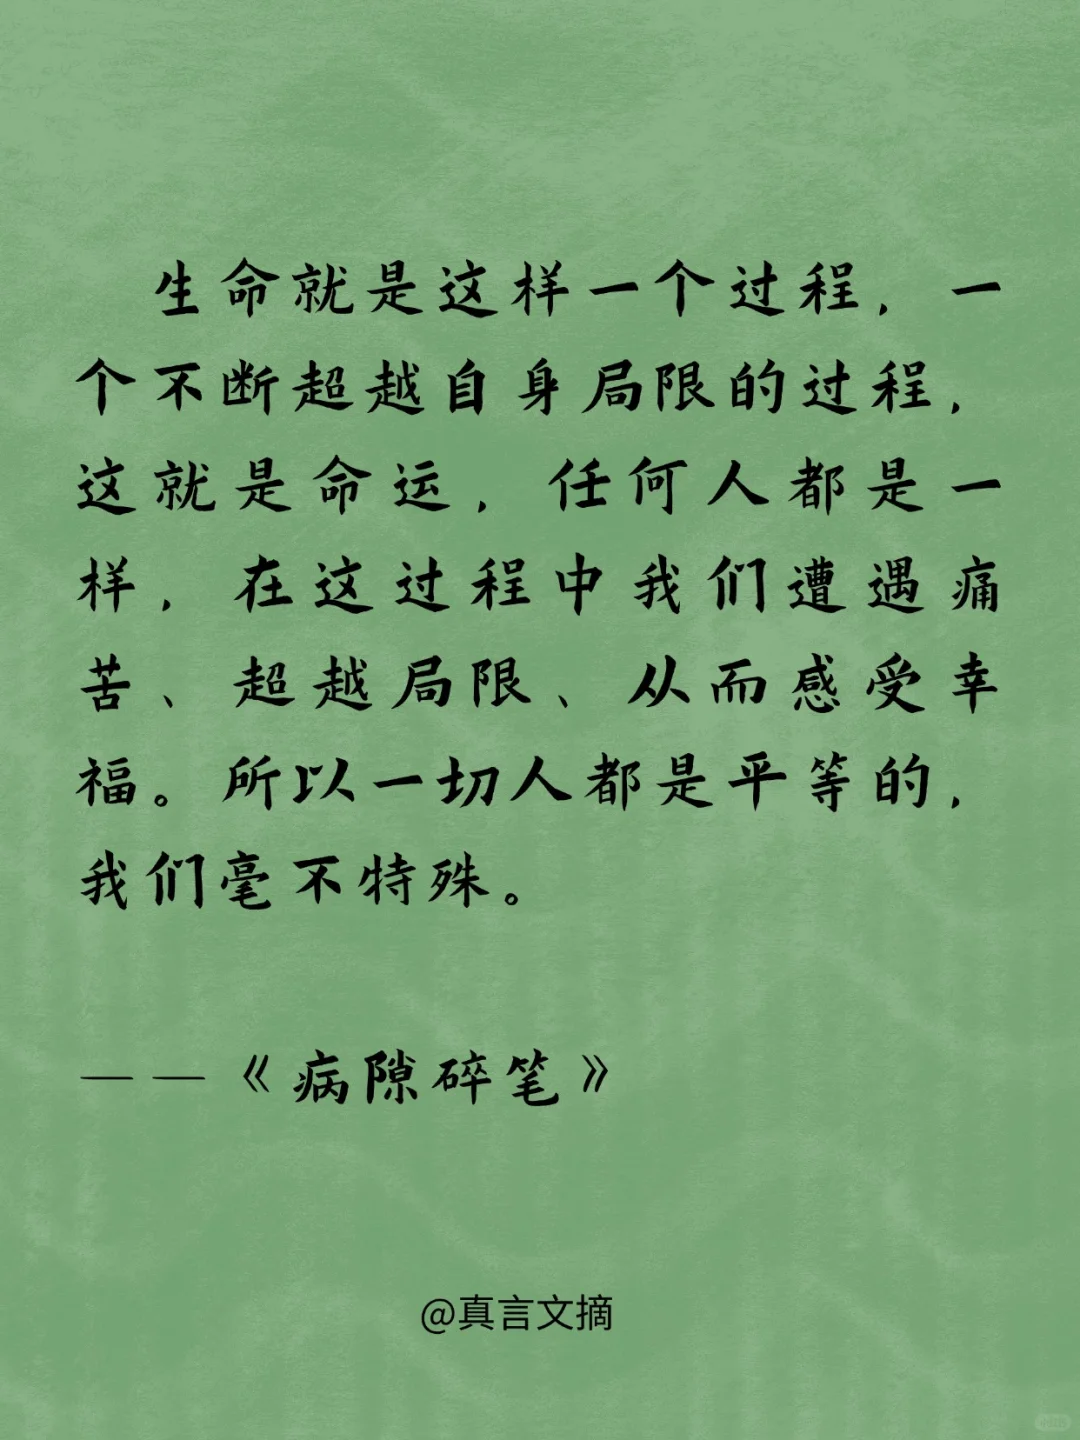 生命就是这样一个过程，一
个不断超越自身局限的过程，
这就是命运，任何人都是一
样，在这过程中我们遭遇痛
苦、超越局限、从而感受幸
福。所以一切人都是平等的，
我们毫不特殊。
——《病隙碎笔》
@真言文摘
小红书